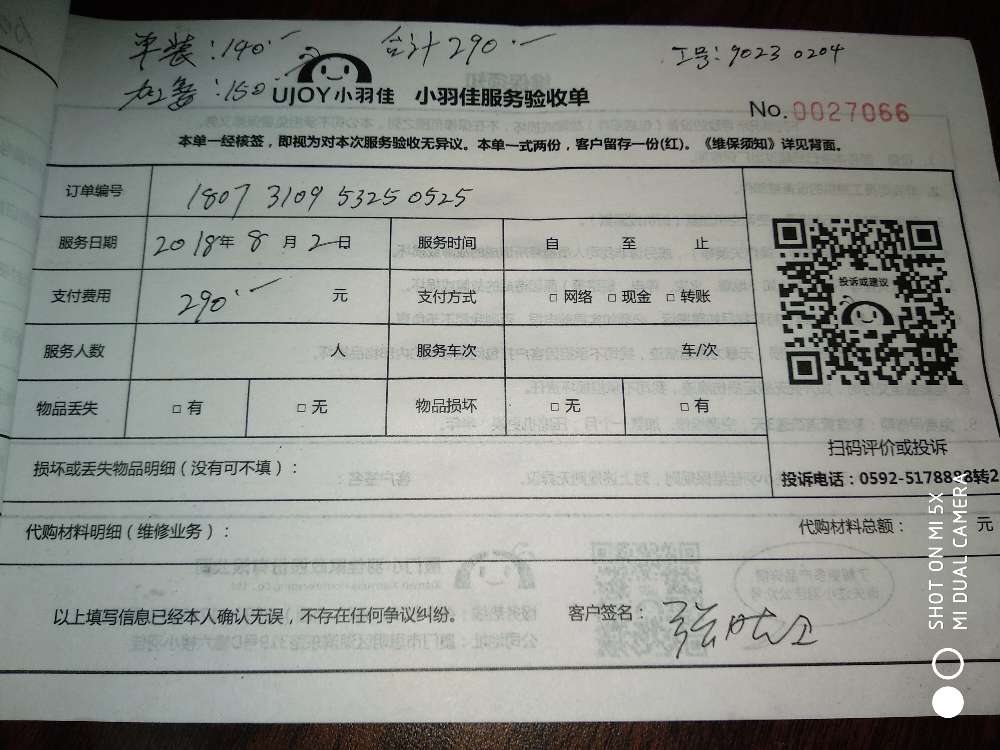 单装：140.一 合计290.一 工号：9023 0204
加雪：150.一 UJOY小羽佳 小羽佳服务验收单
No. 0027066
本单一经核签，即视为对本次服务验收无异议。本单一式两份，客户留存一份(红)。《维保须知》详见背面。
订单编号 1807 3109 5325 0525
服务日期 2018年 8 月 2 日 服务时间 自 至 止
支付费用 290.一 元 支付方式 □ 网络 □ 现金 □ 转账
服务人数 人 服务车次 车/次
物品丢失 □ 有 □ 无 物品损坏 □ 无 □ 有
投诉或建议
扫码评价或投诉
损坏或丢失物品明细（没有可不填）：
投诉电话：0592-5178888转2
代购材料明细（维修业务）： 代购材料总额： 元
以上填写信息已经本人确认无误，不存在任何争议纠纷。 客户签名：
SHOT ON MI 5X
MI DUAL CAMERA